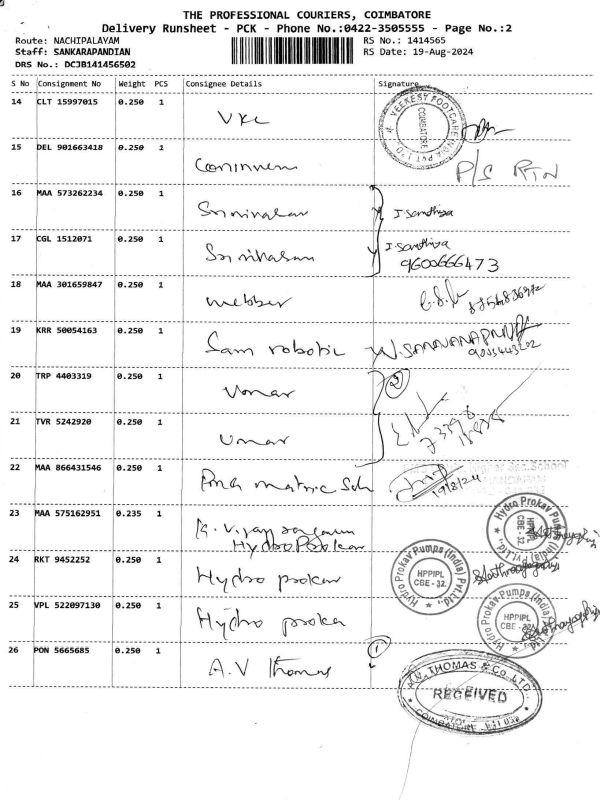 THE PROFESSIONAL COURIERS, COIMBATORE
Delivery Runsheet - PCK - Phone No.:0422-3505555 - Page No.:2
Route: NACHIPALAYAM
RS No.: 1414565
Staff: SANKARAPANDIAN
RS Date: 19-Aug-2024
DRS No.: DCJB141456502
S No Consignment No Weight PCS Consignee Details Signature
14 CLT 15997015 0.250 1 VKC
VEEKESY FOOTCARE INDIA PVT LTD. COIMBATORE
15 DEL 901663418 0.250 1
P/S RTN
16 MAA 573262234 0.250 1 Srinivasan
17 CGL 1512071 0.250 1 Srinivasan
9600666473
18 MAA 301659847 0.250 1 webber
19 KRR 50054163 0.250 1 Sam robotic
20 TRP 4403319 0.250 1 Umar 2
21 TVR 5242920 0.250 1 Umar
22 MAA 866431546 0.250 1 matric Sch
19/8/24
23 MAA 575162951 0.235 1
Hydro Prokav
Hydro Prokav Pumps (India) Pvt.Ltd., HPPIPL CBE - 32.
24 RKT 9452252 0.250 1 Hydro prokav
Hydro Prokav Pumps (India) Pvt.Ltd., HPPIPL CBE - 32.
25 VPL 522097130 0.250 1 Hydro proka
Hydro Prokav Pumps (India) Pvt.Ltd., HPPIPL CBE - 32.
26 PON 5665685 0.250 1 A.V Thomas 1
A.V. THOMAS & Co. LTD. RECEIVED